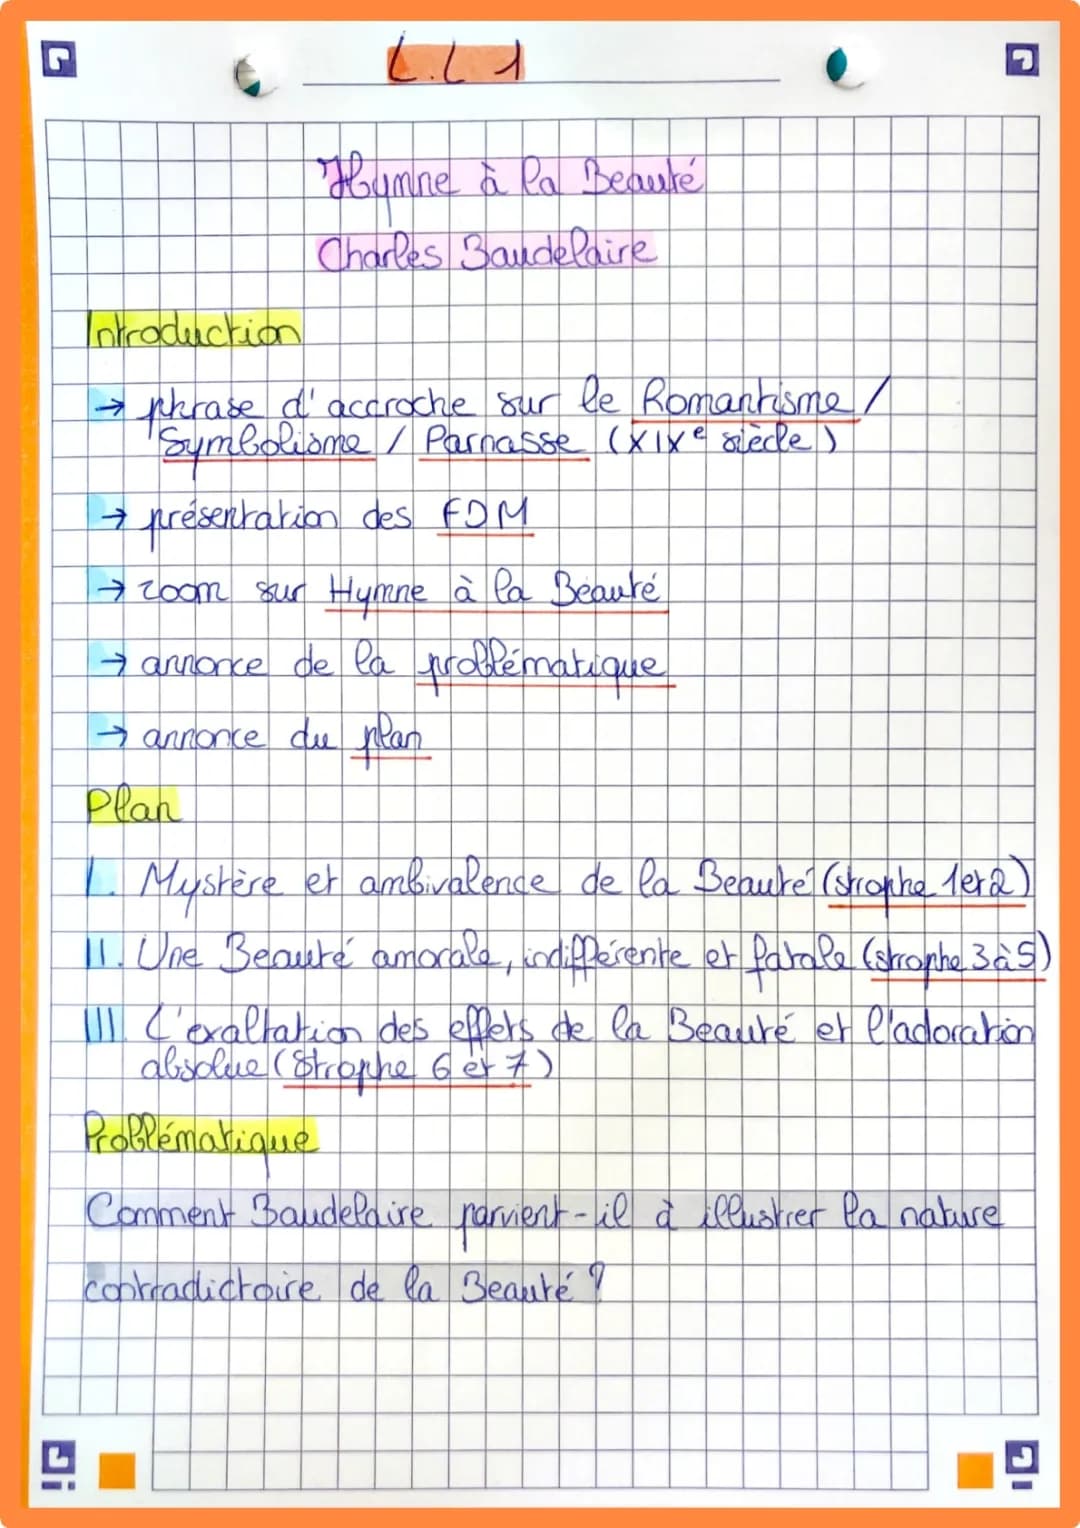 L.L 1
Hymne à la Beauté
Charles Baudelaire
Introduction
→ phrase d'accroche sur le Romantisme /
Symbolisme / Parnasse (XIXe siècle)
→ présentation des FDM
→ zoom sur Hymne à la Beauté
→ annonce de la problématique
→ annonce du plan
Plan
I. Mystère et ambivalence de la Beauté (strophe 1 et 2)
II. Une Beauté amorale, indifférente et fatale (strophe 3 à 5)
III. L'exaltation des effets de la Beauté et l'adoration
absolue (Strophe 6 et 7)
Problématique
Comment Baudelaire parvient-il à illustrer la nature
contradictoire de la Beauté ?